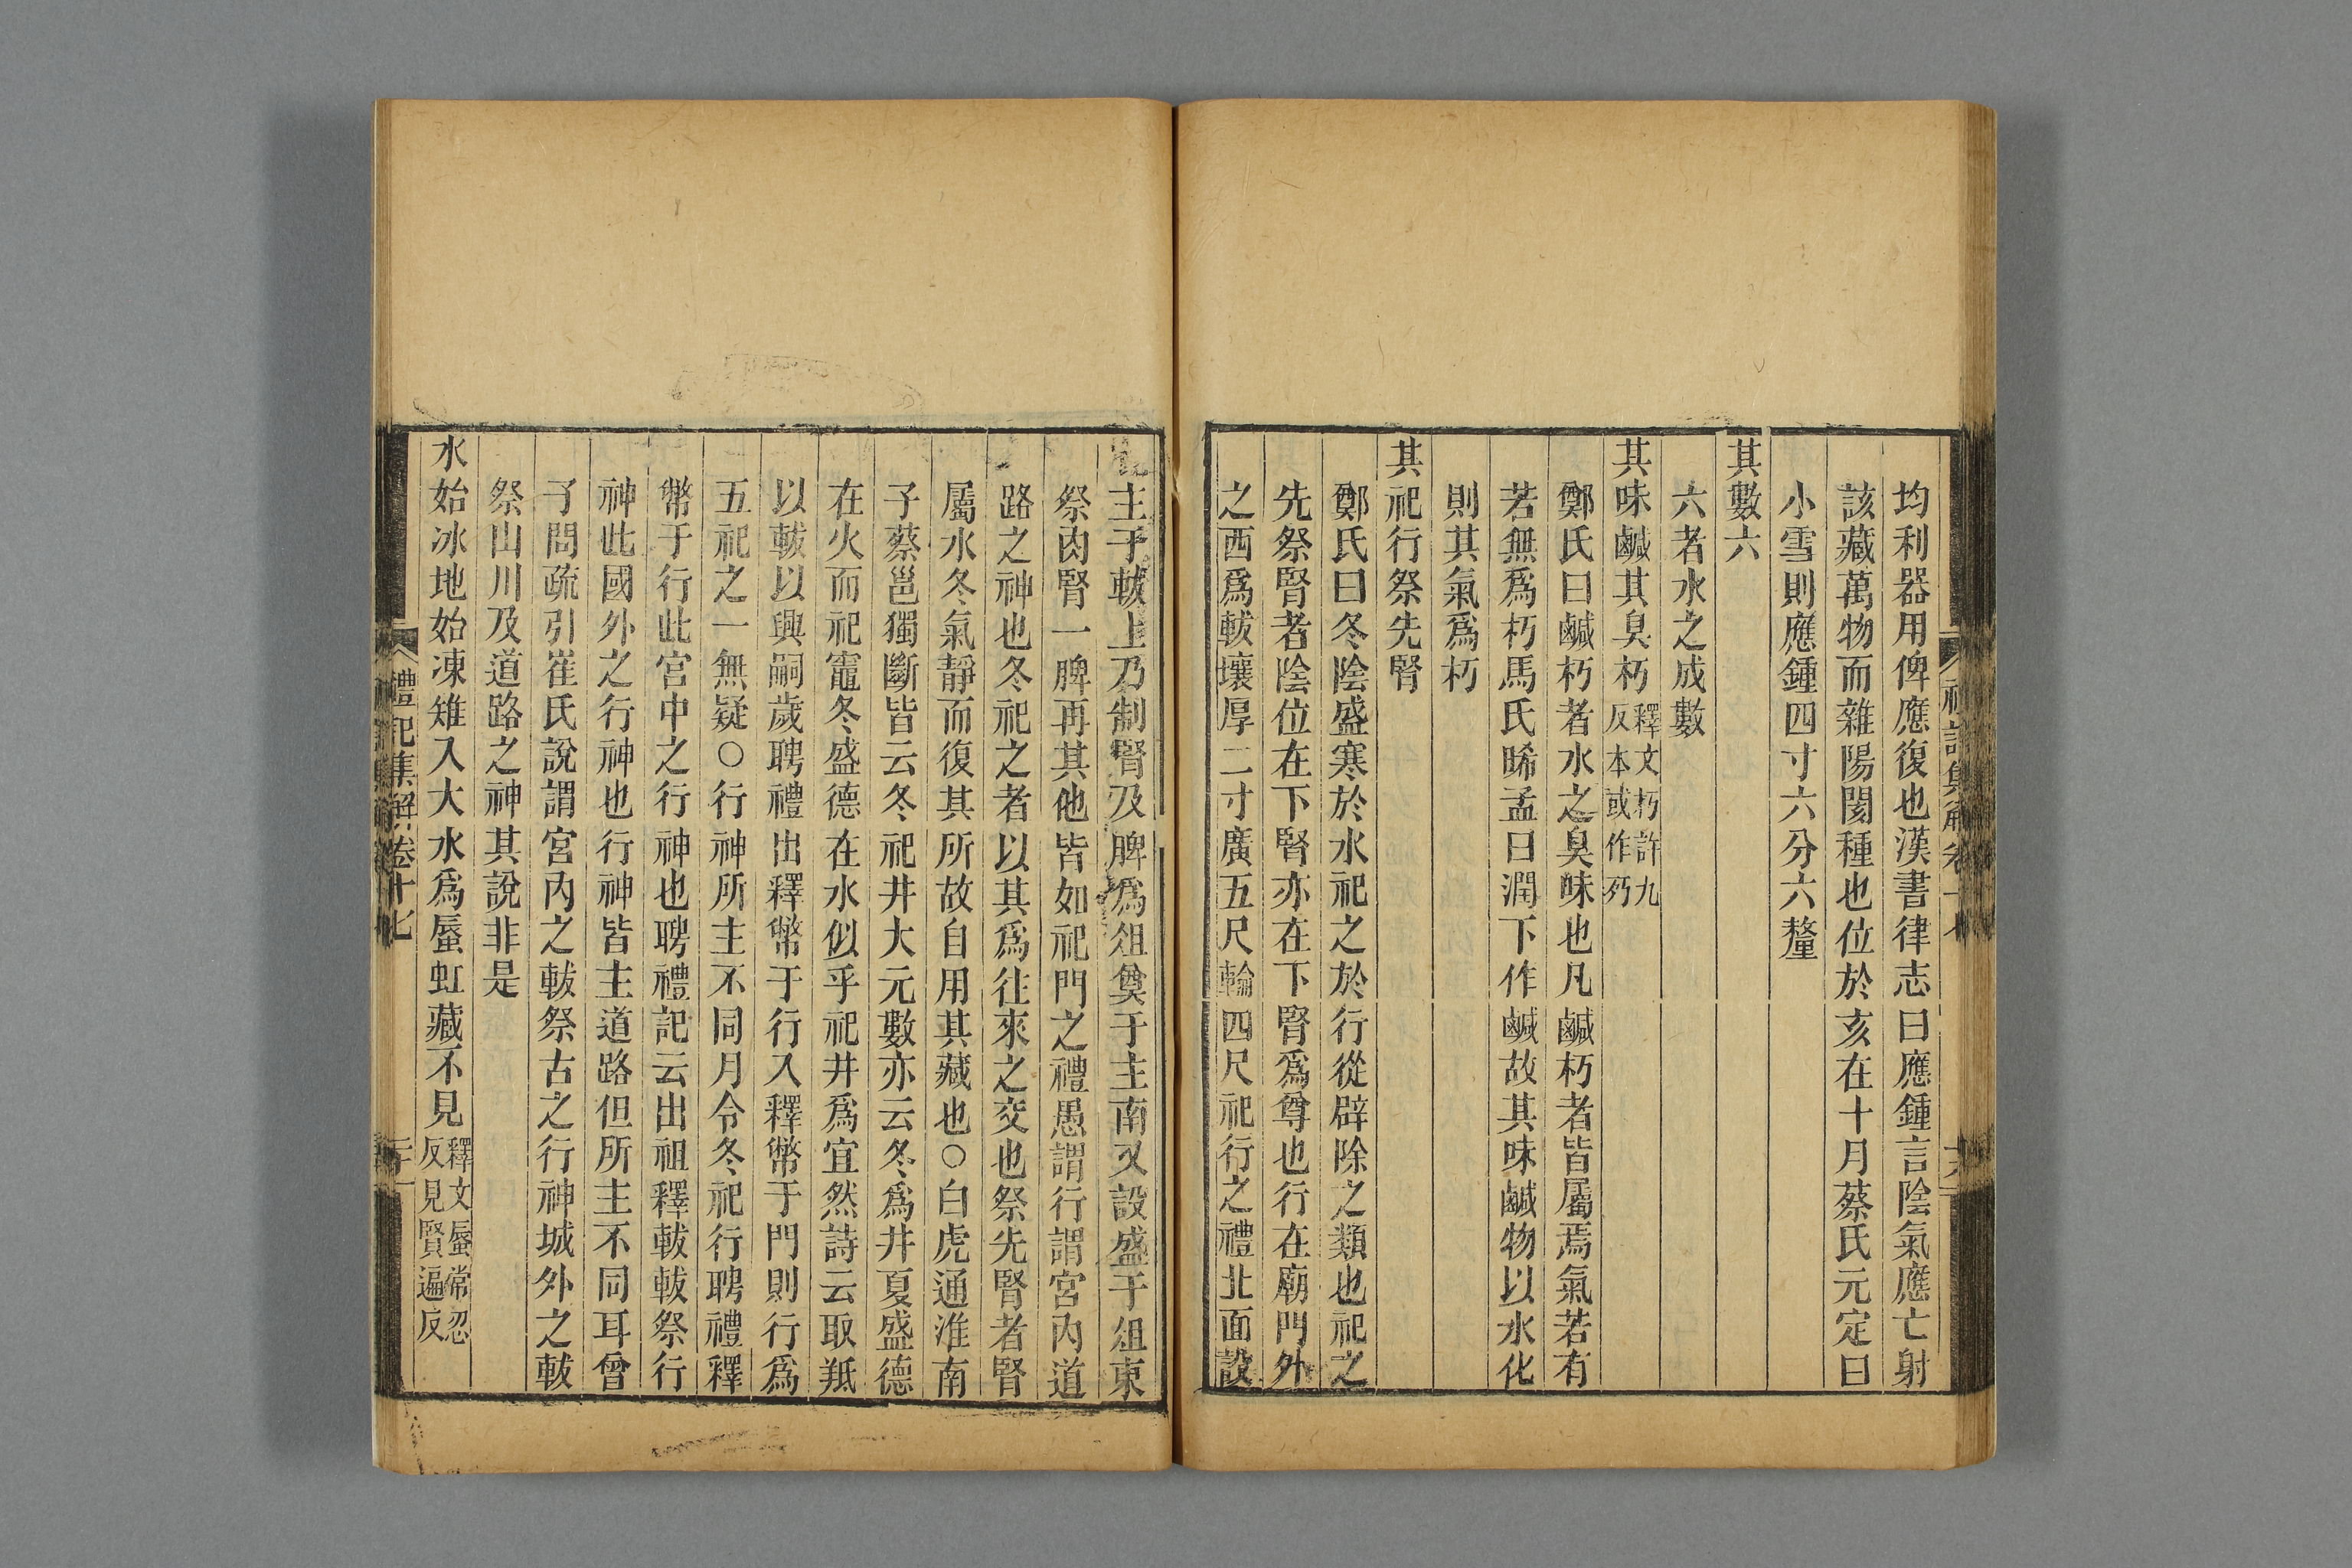 均利器用俾應復也漢書律志曰應鍾言陰氣應亡射
該藏萬物而雜陽閡種也位於亥在十月蔡氏元定曰
小雪則應鍾四寸六分六釐
其數六
六者水之成數
其味鹹其臭朽釋文朽許九反本或作㱙
鄭氏曰鹹朽者水之臭味也凡鹹朽者皆屬焉氣若有
若無爲朽馬氏晞孟曰潤下作鹹故其味鹹物以水化
則其氣爲朽
其祀行祭先腎
鄭氏曰冬陰盛寒於水祀之於行從辟除之類也祀之
先祭腎者陰位在下腎亦在下腎爲尊也行在廟門外
之西爲軷壤厚二寸廣五尺輪四尺祀行之禮北面設
主于軷上乃制腎及脾爲俎奠于主南又設盛于俎東
祭肉腎一脾再其他皆如祀門之禮愚謂行謂宮內道
路之神也冬祀之者以其爲往來之交也祭先腎者腎
屬水冬氣靜而復其所故自用其藏也○白虎通淮南
子蔡邕獨斷皆云冬祀井大元數亦云冬爲井夏盛德
在火而祀竈冬盛德在水似乎祀井爲宜然詩云取羝
以軷以興嗣歲聘禮出釋幣于行入釋幣于門則行爲
五祀之一無疑○行神所主不同月令冬祀行聘禮釋
幣于行此宮中之行神也聘禮記云出祖釋軷軷祭行
神此國外之行神也行神皆主道路但所主不同耳曾
子問疏引崔氏說謂宮內之軷祭古之行神城外之軷
祭山川及道路之神其說非是
水始冰地始凍雉入大水爲蜃虹藏不見釋文蜃常忍反見賢遍反
禮記集解卷十七